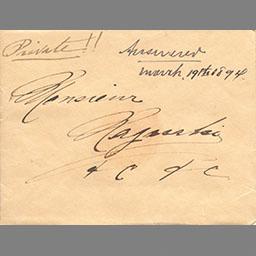 Private!!
Answered
March 19th 1894
Monsieur
& C & C